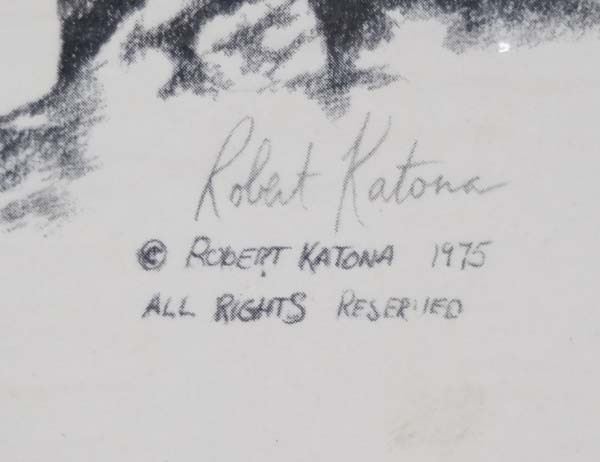 Robert Katona
© ROBERT KATONA 1975
ALL RIGHTS RESERVED